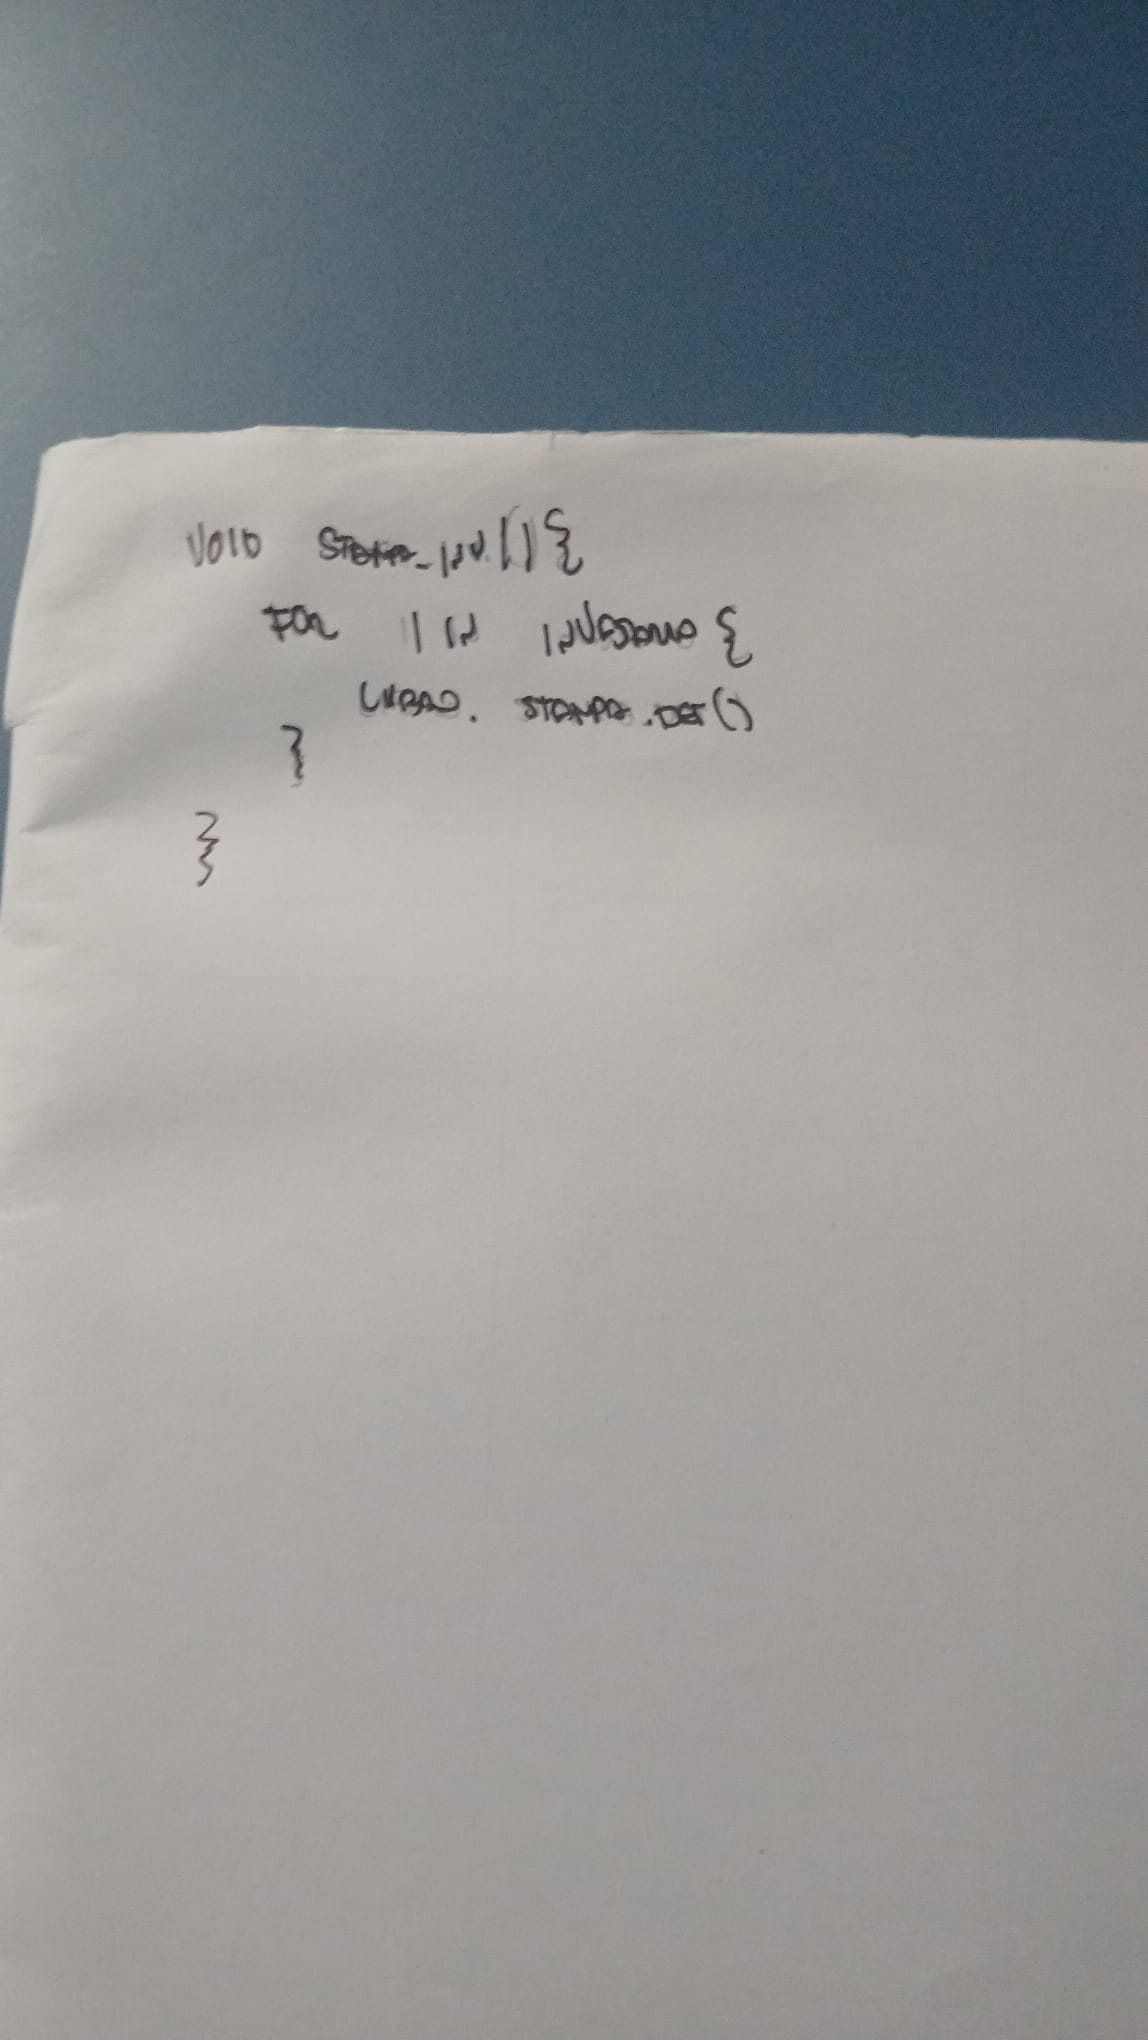 VOID STAMPA_INV(){
FOR I IN INVENTARIO {
LIBRO. STAMPA.DET()
}
}